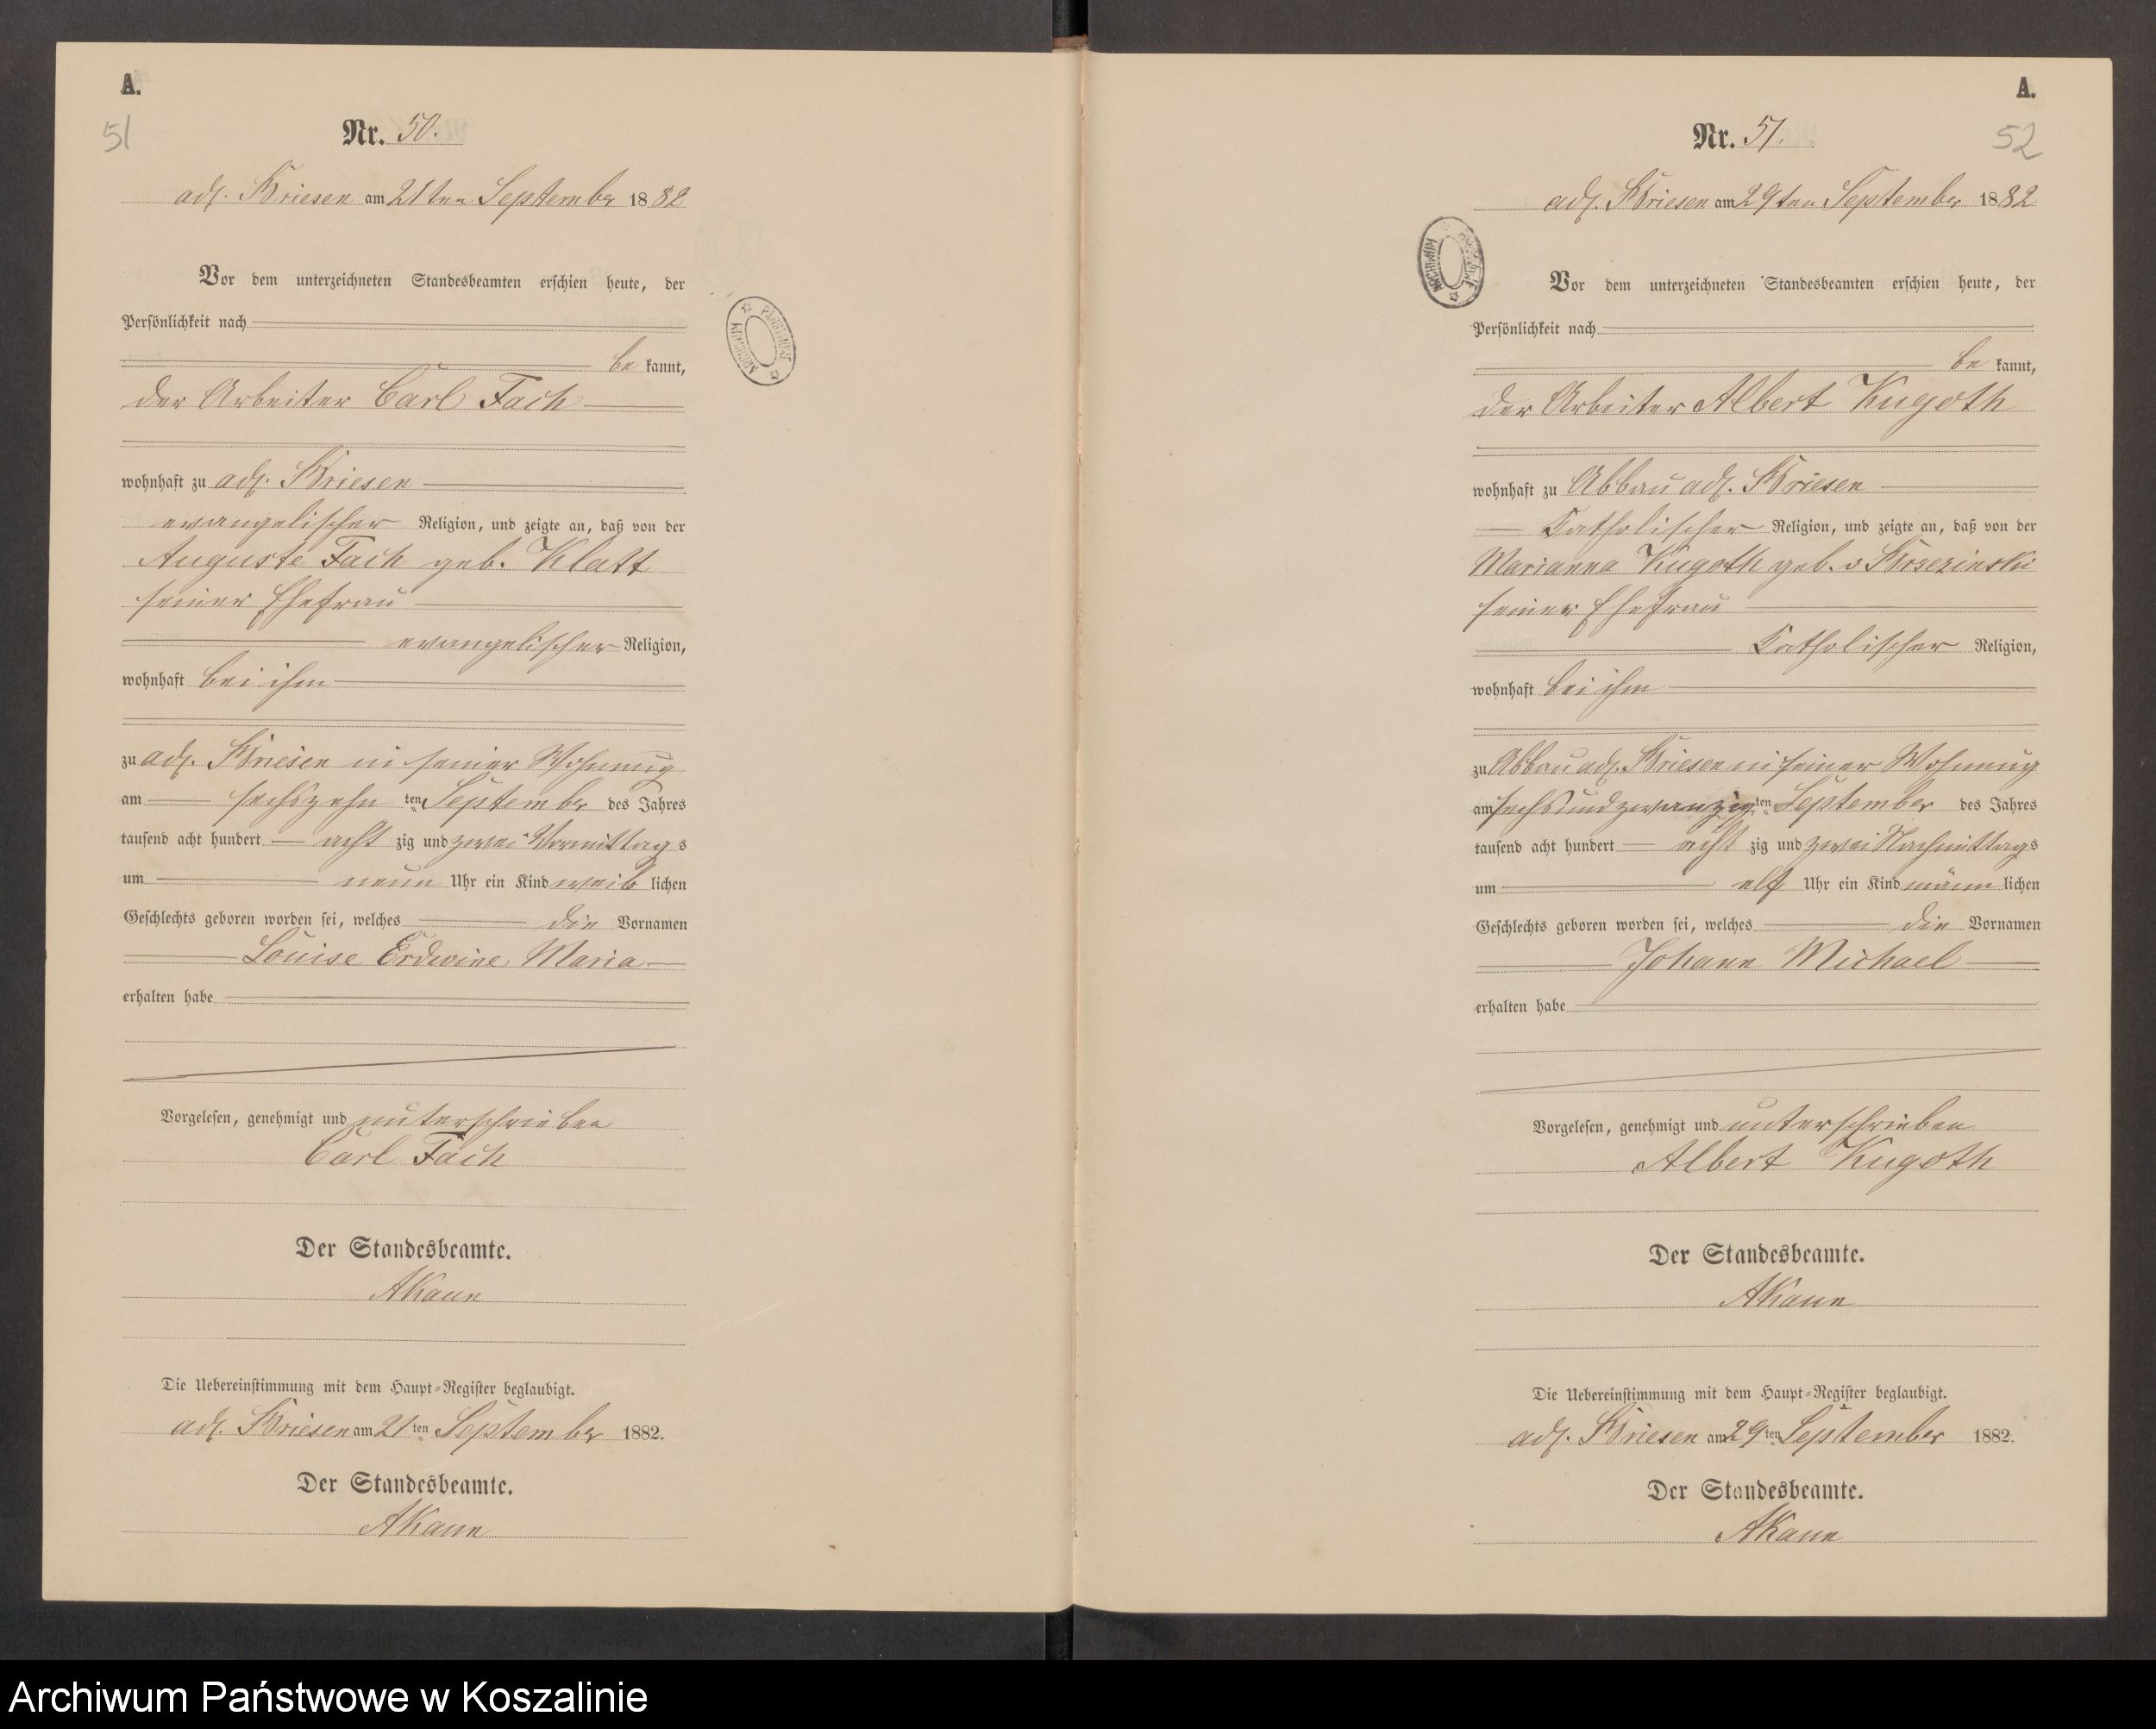 A.
51
Nr. 50.
adl. Briesen am 21ten September 1882
Vor dem unterzeichneten Standesbeamten erschien heute, der
Persönlichkeit nach
be kannt,
der Arbeiter Carl Fach
wohnhaft zu adl. Briesen
evangelischer Religion, und zeigte an, daß von der
Auguste Fach geb. Klatt
seiner Ehefrau
evangelischer Religion,
wohnhaft bei ihm
zu adl. Briesen in seiner Wohnung
am sechszehn ten September des Jahres
tausend acht hundert acht zig und zwei Vormittag s
um neun Uhr ein Kind weib lichen
Geschlechts geboren worden sei, welches die Vornamen
Louise Erdwine Maria
erhalten habe
Vorgelesen, genehmigt und unterschrieben
Carl Fach
Der Standesbeamte.
AKaun
Die Uebereinstimmung mit dem Haupt-Register beglaubigt.
adl. Briesen am 21ten September 1882.
Der Standesbeamte.
AKaun
A.
52
Nr. 51.
adl. Briesen am 29ten September 1882
Vor dem unterzeichneten Standesbeamten erschien heute, der
Persönlichkeit nach
be kannt,
der Arbeiter Albert Kugoth
wohnhaft zu Abbau adl. Briesen
Katholischer Religion, und zeigte an, daß von der
Marianna Kugoth geb. v
seiner Ehefrau
Katholischer Religion,
wohnhaft bei ihm
zu Abbau adl. Briesen in seiner Wohnung
am sechsundzwanzigten September des Jahres
tausend acht hundert acht zig und zwei Nachmittags
um elf Uhr ein Kind männ lichen
Geschlechts geboren worden sei, welches die Vornamen
Johann Michael
erhalten habe
Vorgelesen, genehmigt und unterschrieben
Albert Kugoth
Der Standesbeamte.
AKaun
Die Uebereinstimmung mit dem Haupt-Register beglaubigt.
adl. Briesen am 29ten September 1882.
Der Standesbeamte.
AKaun
Archiwum Państwowe w Koszalinie